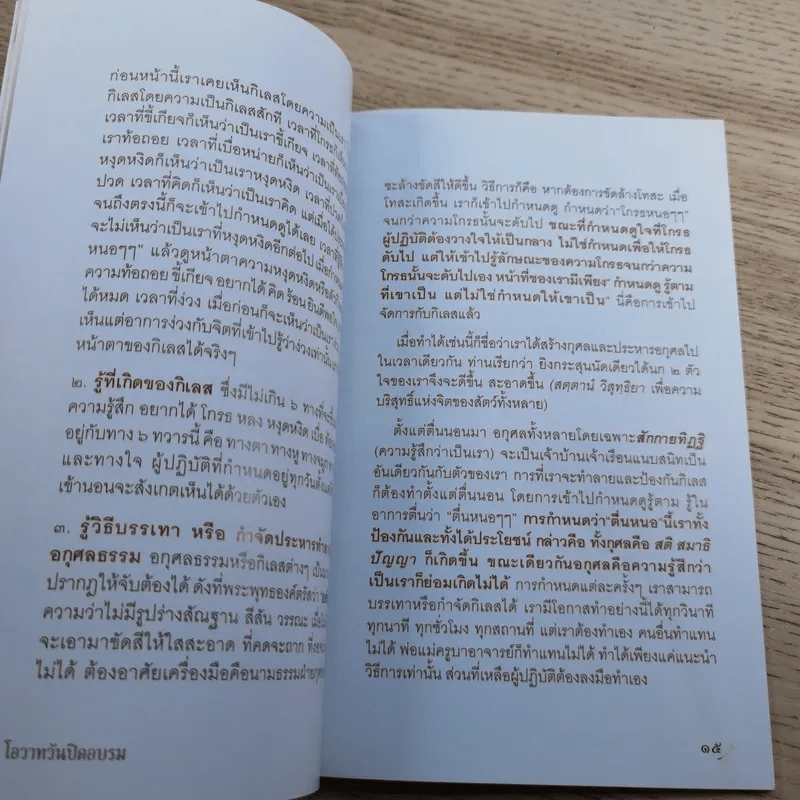 ก่อนหน้านี้เราเคยเห็นกิเลสโดยความเป็น
กิเลสโดยความเป็นกิเลสสักที เวลาที่โกรธก็
เวลาที่ขี้เกียจก็เห็นว่าเป็นเราขี้เกียจ
เราท้อถอย เวลาที่เบื่อหน่ายก็เห็นว่าเป็นเรา
หงุดหงิดก็เห็นว่าเป็นเราหงุดหงิด
ปวด เวลาที่คิดก็เห็นว่าเป็นเราคิด แต่เมื่อได้
จนถึงตรงนี้ก็จะเข้าไปกำหนดดูได้เลย
จะไม่เห็นว่าเป็นเราที่หงุดหงิดอีกต่อไป เมื่อ
หนอๆๆ” แล้วดูหน้าตาความหงุดหงิดหรือ
ความท้อถอย ขี้เกียจ อยากได้ คิด ร้อน ยินดี
ได้หมด เวลาที่ง่วง เมื่อก่อนก็จะเห็นว่าเป็น
เห็นแต่อาการง่วงกับจิตที่เข้าไปรู้ว่าง่วงเท่านั้น
หน้าตาของกิเลสได้จริงๆ
๒. รู้ที่เกิดของกิเลส ซึ่งมีไม่เกิน ๖ ทาง
ความรู้สึก อยากได้ โกรธ หลง หงุดหงิด เบื่อ
อยู่กับทาง ๖ ทวารนี้ คือ ทางตา ทางหู ทางจมูก
และทางใจ ผู้ปฏิบัติที่กำหนดอยู่ทุกวันตั้งแต่
เข้านอนจะสังเกตเห็นได้ด้วยตัวเอง
๓. รู้วิธีบรรเทา หรือ กำจัดประหาร
อกุศลธรรม อกุศลธรรมหรือกิเลสต่างๆ
ปรากฏให้จับต้องได้ ดังที่พระพุทธองค์ตรัสว่า
ความว่าไม่มีรูปร่างสัณฐาน สีสัน วรรณะ
จะเอามาขัดสีให้ใสสะอาด ที่คดจะถาก
ไม่ได้ ต้องอาศัยเครื่องมือคือนามธรรมฝ่าย
โอวาทวันปิดอบรม
ชะล้างขัดสีให้ดีขึ้น วิธีการก็คือ หากต้องการขัดล้างโทสะ เมื่อ
โทสะเกิดขึ้น เราก็เข้าไปกำหนดดู กำหนดว่า“โกรธหนอๆๆ”
จนกว่าความโกรธนั้นจะดับไป ขณะที่กำหนดดูใจที่โกรธ
ผู้ปฏิบัติต้องวางใจให้เป็นกลาง ไม่ใช่กำหนดเพื่อให้โกรธ
ดับไป แต่ให้เข้าไปรู้ลักษณะของความโกรธจนกว่าความ
โกรธนั้นจะดับไปเอง หน้าที่ของเรามีเพียง“กำหนดดู รู้ตาม
ที่เขาเป็น แต่ไม่ใช่กำหนดให้เขาเป็น” นี่คือการเข้าไป
จัดการกับกิเลสแล้ว
เมื่อทำได้เช่นนี้ก็ชื่อว่าเราได้สร้างกุศลและประหารอกุศลไป
ในเวลาเดียวกัน ท่านเรียกว่า ยิงกระสุนนัดเดียวได้นก ๒ ตัว
ใจของเราจึงจะดีขึ้น สะอาดขึ้น (สตฺตานํ วิสุทฺธิยา เพื่อความ
บริสุทธิ์แห่งจิตของสัตว์ทั้งหลาย)
ตั้งแต่ตื่นนอนมา อกุศลทั้งหลายโดยเฉพาะสักกายทิฏฐิ
(ความรู้สึกว่าเป็นเรา) จะเป็นเจ้าบ้านเจ้าเรือนแนบสนิทเป็น
อันเดียวกันกับตัวของเรา การที่เราจะทำลายและป้องกันกิเลส
ก็ต้องทำตั้งแต่ตื่นนอน โดยการเข้าไปกำหนดดูรู้ตาม รู้ใน
อาการตื่นว่า “ตื่นหนอๆๆ” การกำหนดว่า“ตื่นหนอ”นี้เราทั้ง
ป้องกันและทั้งได้ประโยชน์ กล่าวคือ ทั้งกุศลคือ สติ สมาธิ
ปัญญา ก็เกิดขึ้น ขณะเดียวกันอกุศลคือความรู้สึกว่า
เป็นเราก็ย่อมเกิดไม่ได้ การกำหนดแต่ละครั้งๆ เราสามารถ
บรรเทาหรือกำจัดกิเลสได้ เรามีโอกาสทำอย่างนี้ได้ทุกวินาที
ทุกนาที ทุกชั่วโมง ทุกสถานที่ แต่เราต้องทำเอง คนอื่นทำแทน
ไม่ได้ พ่อแม่ครูบาอาจารย์ก็ทำแทนไม่ได้ ทำได้เพียงแค่แนะนำ
วิธีการเท่านั้น ส่วนที่เหลือผู้ปฏิบัติต้องลงมือทำเอง
๑๕